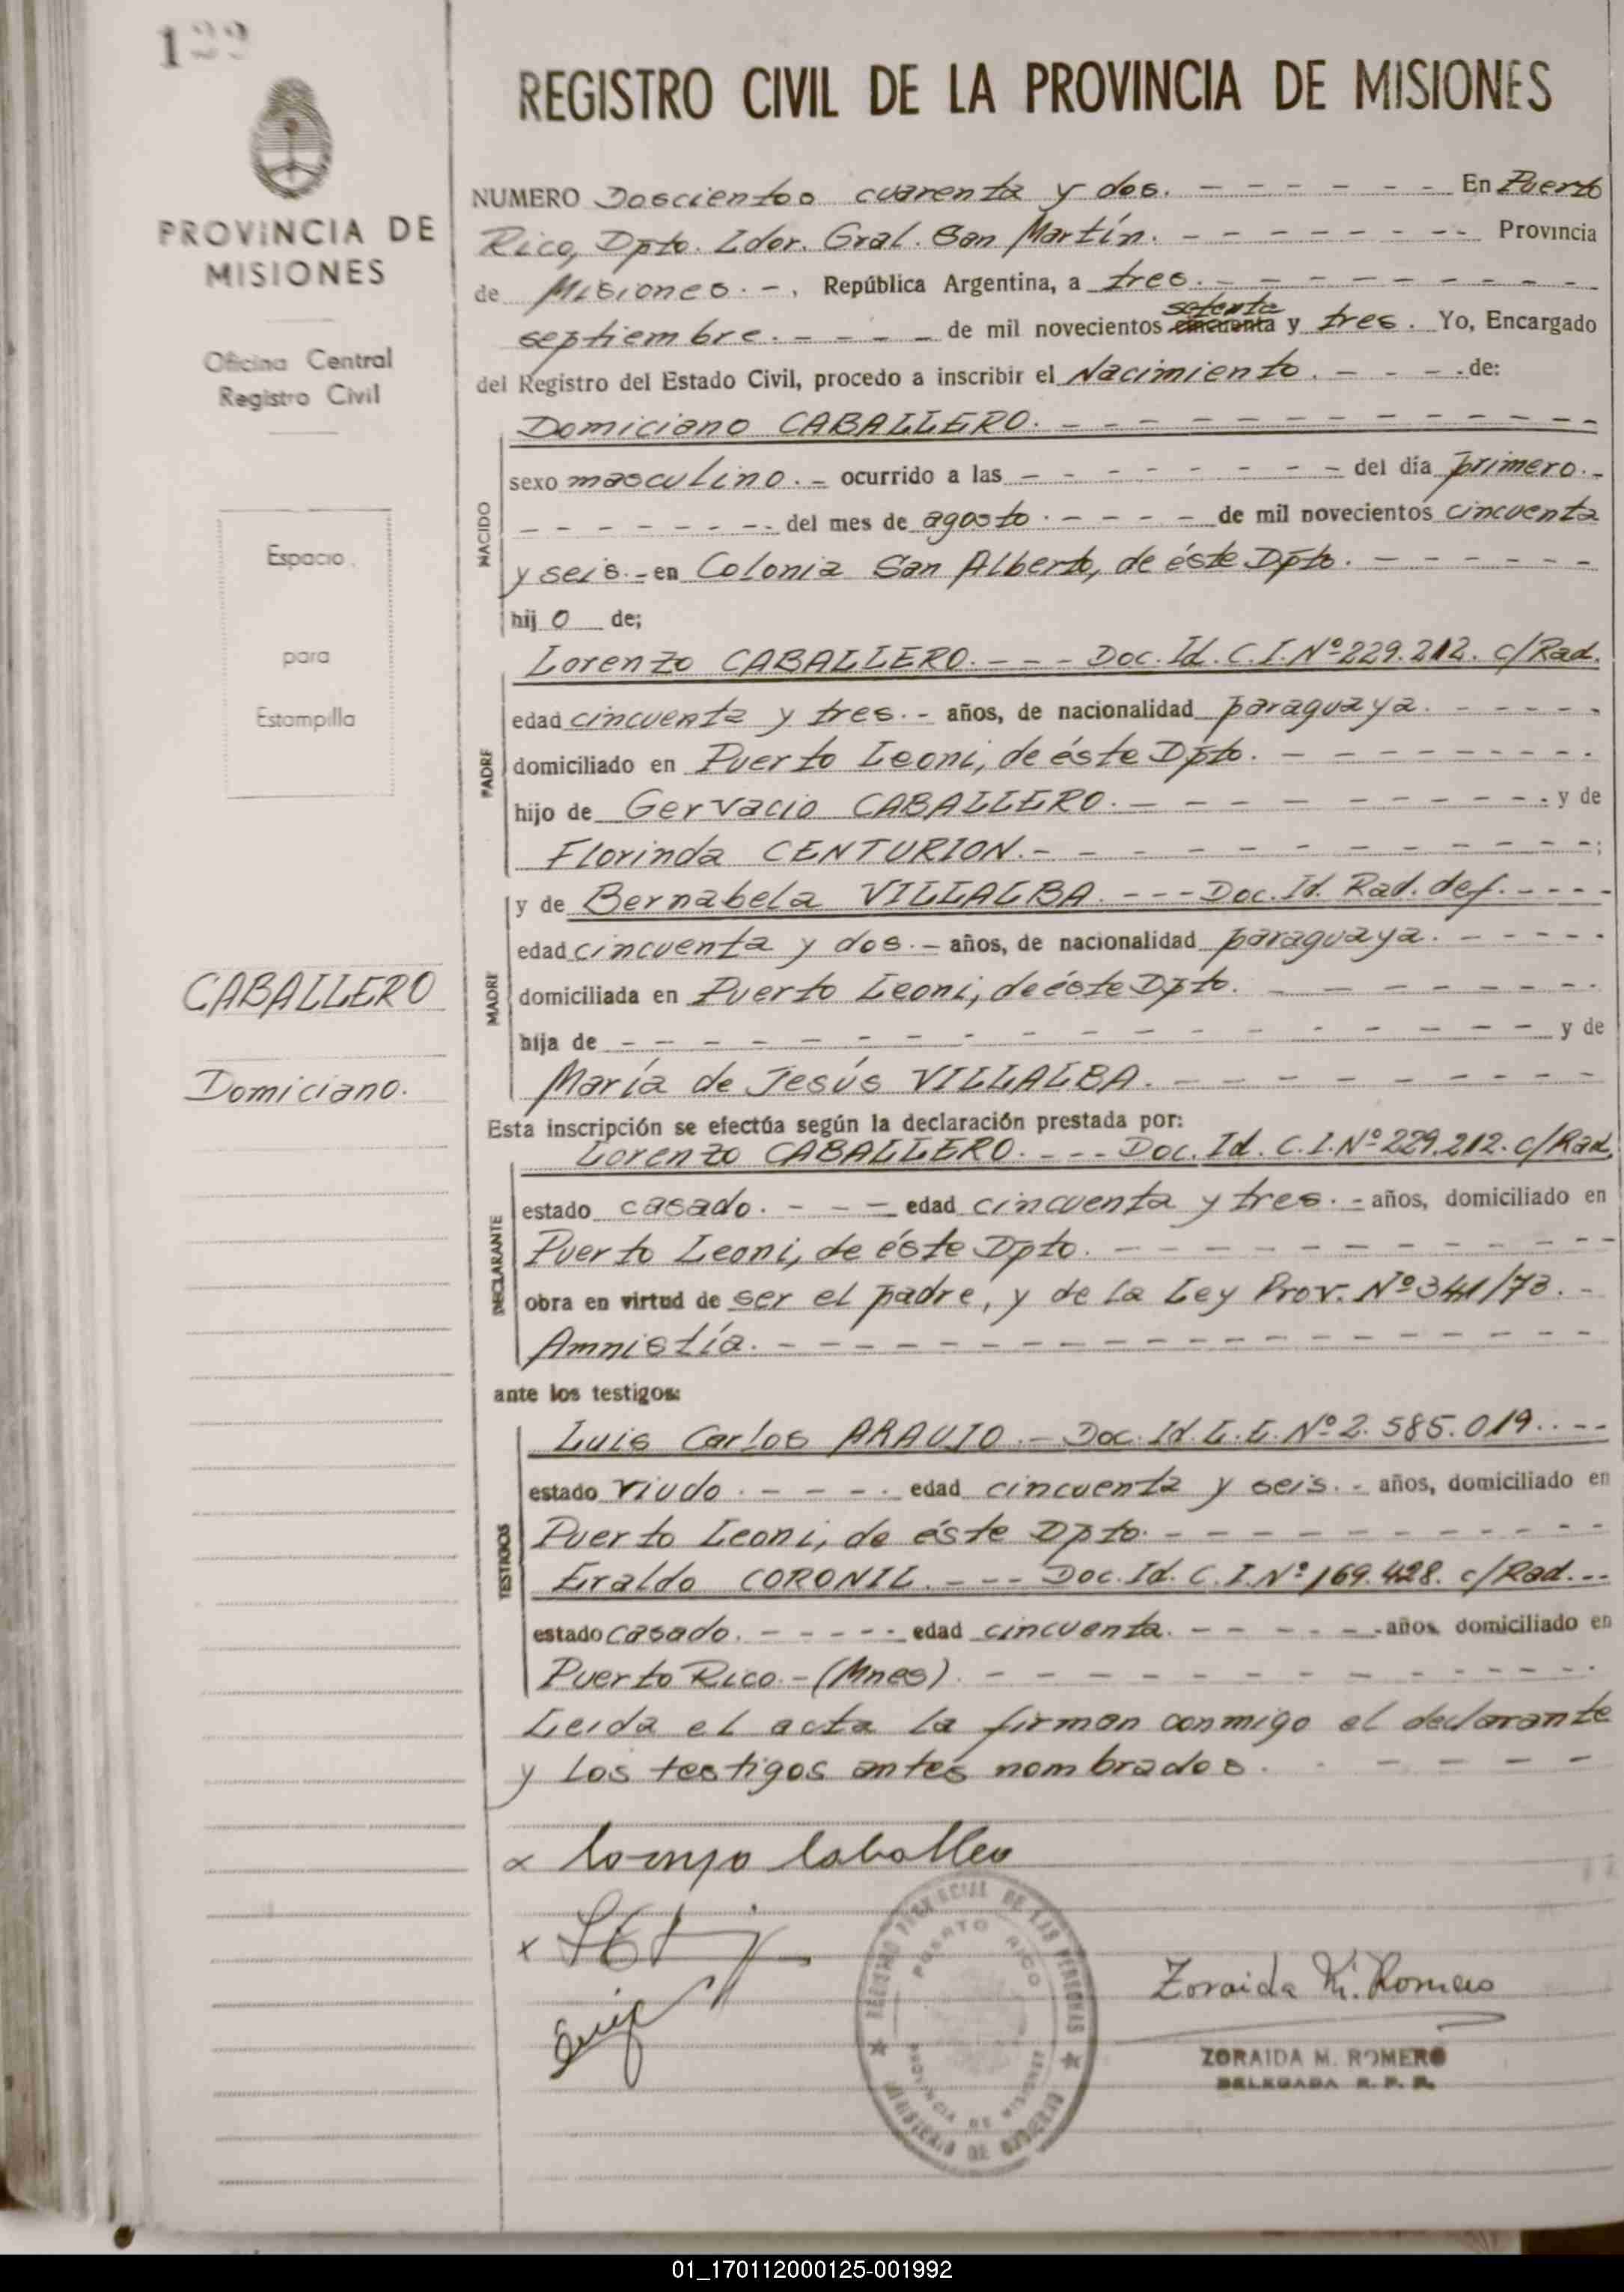 REGISTRO CIVIL DE LA PROVINCIA DE MISIONES
PROVINCIA DE
MISIONES
Oficina Central
Registro Civil
Espacio
para
Estampilla
CABALLERO
Domiciano.
NUMERO Doscientos cuarenta y dos. - - - - - - En Puerto
Rico, Dpto. Ldor. Gral. San Martín. - - - - - - - - Provincia
de Misiones. - , República Argentina, a tres. - - - - - - - -
setenta
septiembre. - - - - de mil novecientos cincuenta y tres. Yo, Encargado
del Registro del Estado Civil, procedo a inscribir el Nacimiento. - - - de:
NACIDO
Domiciano CABALLERO. - - - - - - - - - - - -
sexo masculino. - ocurrido a las - - - - - - - - del día primero. -
- - - - - - - del mes de agosto. - - - - de mil novecientos cincuenta
y seis. - en Colonia San Alberto, de éste Dpto. - - - - - -
hij o de;
PADRE
Lorenzo CABALLERO. - - - Doc. Id. C.I. Nº 229.212. c/Rad.
edad cincuenta y tres. - años, de nacionalidad paraguaya. - - - - -
domiciliado en Puerto Leoni, de éste Dpto. - - - - - - - - -
hijo de Gervacio CABALLERO. - - - - - - - - - y de
Florinda CENTURION. - - - - - - - - - - - - ;
MADRE
y de Bernabela VILLALBA. - - - Doc. Id. Rad. def. - - - -
edad cincuenta y dos. - años, de nacionalidad paraguaya. - - - - -
domiciliada en Puerto Leoni, de éste Dpto. - - - - - - - -
hija de - - - - - - - - - - - - - - - - y de
María de Jesús VILLALBA. - - - - - - - - - -
Esta inscripción se efectúa según la declaración prestada por:
DECLARANTE
Lorenzo CABALLERO. - - - Doc. Id. C.I. Nº 229.212. c/Rad.
estado casado. - - - edad cincuenta y tres. - años, domiciliado en
Puerto Leoni, de éste Dpto. - - - - - - - - - - - -
obra en virtud de ser el padre, y de la Ley Prov. Nº 341/73. -
Amnistía. - - - - - - - - - - - - - - - - -
ante los testigos:
TESTIGOS
Luis Carlos ARAUJO. - Doc. Id. L.E. Nº 2.585.019. - - -
estado viudo. - - - - edad cincuenta y seis. - años, domiciliado en
Puerto Leoni, de éste Dpto. - - - - - - - - - -
Eraldo CORONIL. - - - Doc. Id. C.I. Nº 169.428. c/Rad. - -
estado casado. - - - - - edad cincuenta. - - - - - años, domiciliado en
Puerto Rico. - (Mnes). - - - - - - - - - - - -
Leida el acta la firman conmigo el declarante
y los testigos antes nombrados. - - - - - -
x Lorenzo Caballero
x
REGISTRO PROVINCIAL DE LAS PERSONAS
PUERTO RICO
PROVINCIA DE MISIONES
MINISTERIO DE GOBIERNO
Zoraida M. Romero
ZORAIDA M. ROMERO
DELEGADA R. P. P.
01_170112000125-001992